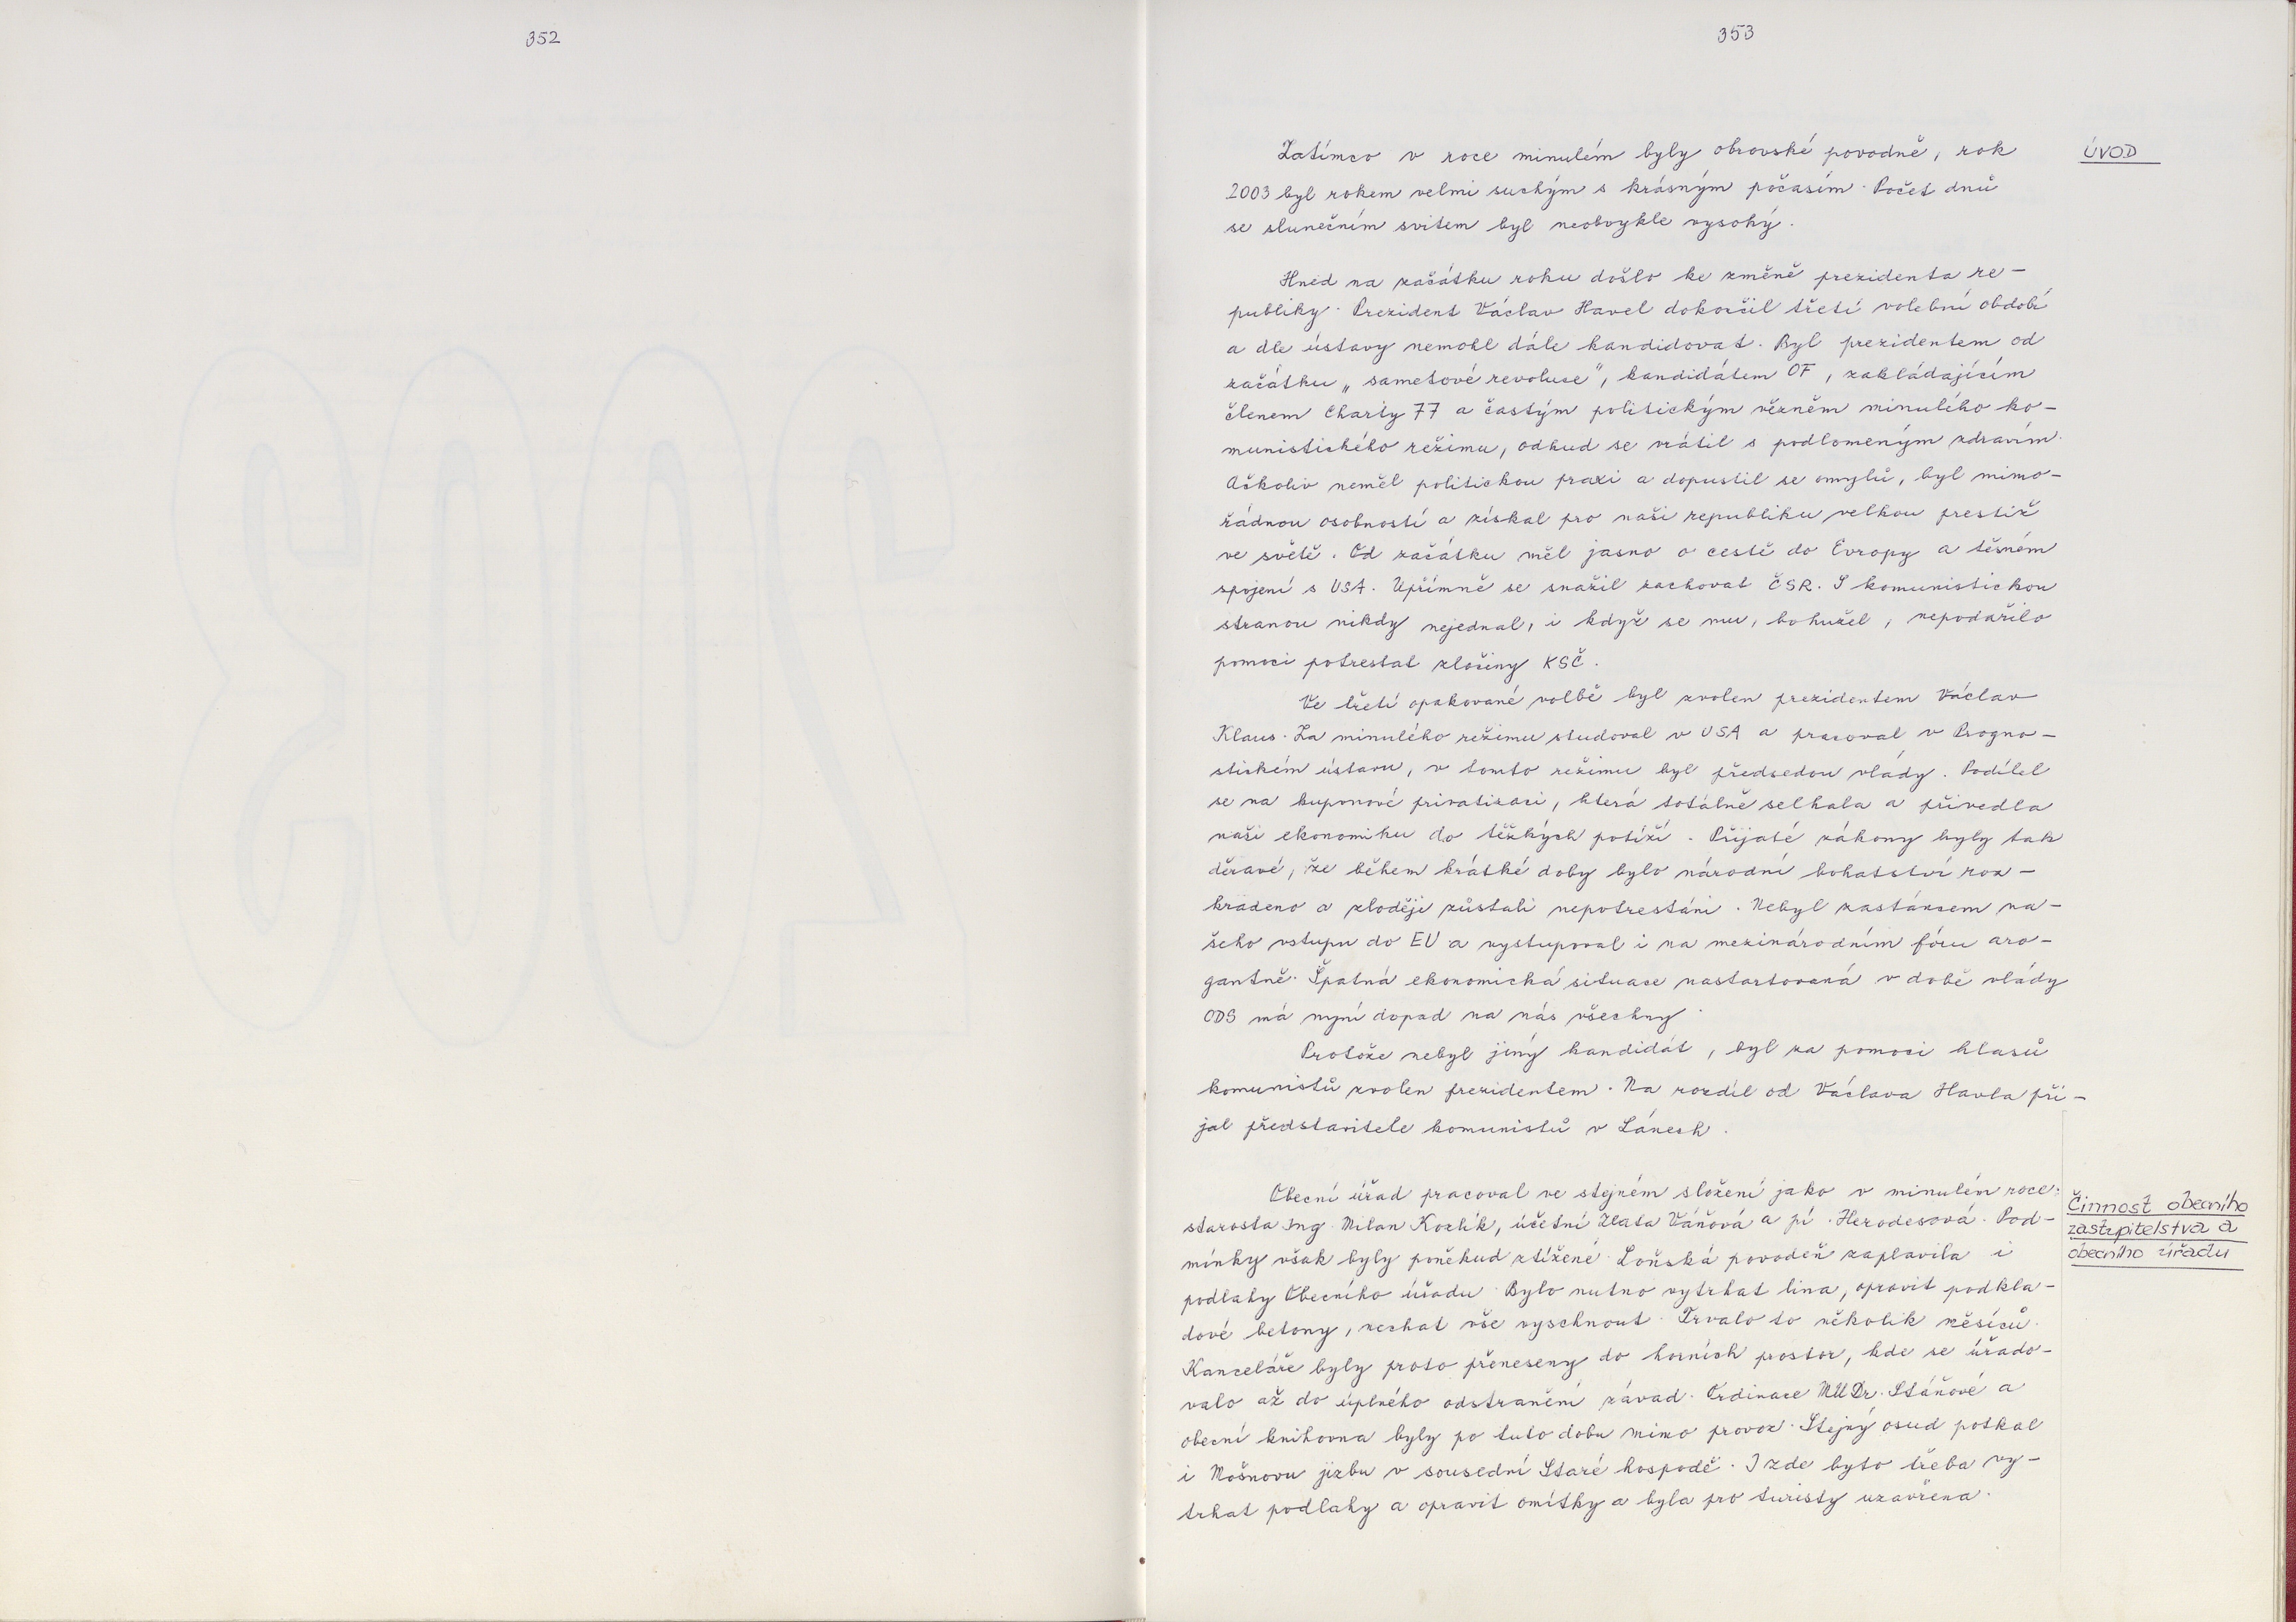 352
353
ÚVOD
Zatímco v roce minulém byly obrovské povodně, rok
2003 byl rokem velmi suchým s krásným počasím. Počet dnů
se slunečním svitem byl neobvykle vysoký.
Hned na začátku roku došlo ke změně prezidenta re-
publiky. Prezident Václav Havel dokončil třetí volební období
a dle ústavy nemohl dále kandidovat. Byl prezidentem od
začátku „sametové revoluce", kandidátem OF, zakládajícím
členem Charty 77 a častým politickým vězněm minulého ko-
munistického režimu, odkud se vrátil s podlomeným zdravím.
Ačkoliv neměl politickou praxi a dopustil se omylů, byl mimo-
řádnou osobností a získal pro naši republiku velkou prestiž
ve světě. Od začátku měl jasno o cestě do Evropy a těsném
spojení s USA. Upřímně se snažil zachovat ČSR. S komunistickou
stranou nikdy nejednal, i když se mu, bohužel, nepodařilo
pomoci potrestat zločiny KSČ.
Ve třetí opakované volbě byl zvolen prezidentem Václav
Klaus. Za minulého režimu studoval v USA a pracoval v Progno-
stickém ústavu, v tomto režimu byl předsedou vlády. Podílel
se na kuponové privatizaci, která totálně selhala a přivedla
naši ekonomiku do těžkých potíží. Přijaté zákony byly tak
děravé, že během krátké doby bylo národní bohatství roz-
kradeno a zloději zůstali nepotrestáni. Nebyl zastáncem na-
šeho vstupu do EU a vystupoval i na mezinárodním fóru aro-
gantně. Špatná ekonomická situace nastartovaná v době vlády
ODS má nyní dopad na nás všechny.
Protože nebyl jiný kandidát, byl za pomoci hlasů
komunistů zvolen prezidentem. Na rozdíl od Václava Havla při-
jal představitele komunistů v Lánech.
Činnost obecního
zastupitelstva a
obecního úřadu
Obecní úřad pracoval ve stejném složení jako v minulém roce:
starosta Ing. Milan Kozlík, účetní Zlata Váňová a pí. Herodesová. Pod-
mínky však byly poněkud ztížené. Loňská povodeň zaplavila i
podlahy Obecního úřadu. Bylo nutno vytrhat lina, opravit podkla-
dové betony, nechat vše vyschnout. Trvalo to několik měsíců.
Kanceláře byly proto přeneseny do horních prostor, kde se úřado-
valo až do úplného odstranění závad. Ordinace MUDr. Stáňové a
obecní knihovna byly po tuto dobu mimo provoz. Stejný osud potkal
i Mošnovu jizbu v sousední Staré hospodě. I zde bylo třeba vy-
trhat podlahy a opravit omítky a byla pro turisty uzavřena.